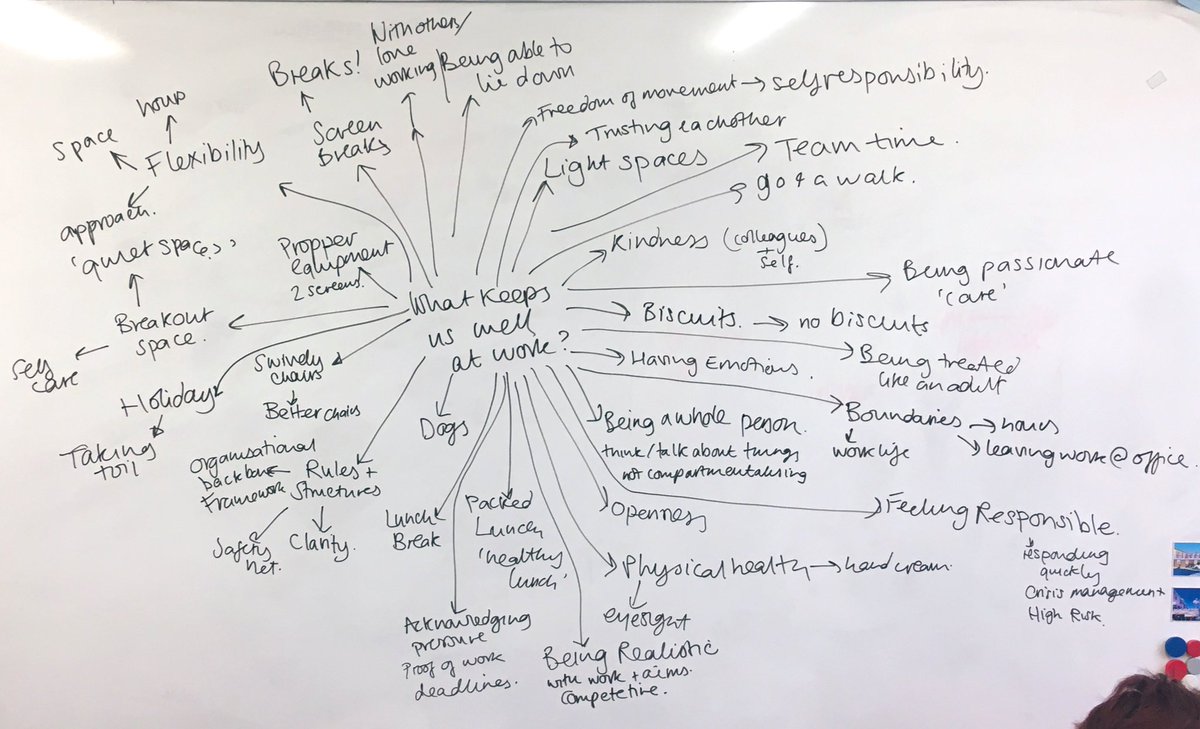 What Keeps
us well
at work?
Breaks!
Screen
Breaks
With others/
lone
working
Being able to
lie down
Freedom of movement → self responsibility.
Trusting eachother
Light spaces
Team time.
go 4 a walk.
Kindness (colleagues)
+
self.
Being passionate
'care'
Biscuits. → no biscuits
Being treated
like an adult
Having Emotions.
Boundaries → hours
work life
leaving work @ office.
Being a whole person.
think/talk about things
not compartmentalising
Feeling Responsible.
responding
quickly
Crisis management
High Risk.
Openness
Physical health → hand cream.
eyesight
Being Realistic
with work + aims.
Competetive.
Packed
Lunch
'healthy
lunch'
Acknowledging
pressure
Proof of work
deadlines.
Lunch
Break
Dogs
Rules +
Structures
Organisational
backbone
framework
Safety
net.
Clarity.
Swindy
chairs
Better chairs
Holiday
Taking
toil
Breakout
space.
'quiet spaces'
Self
care
Propper
equipment
2 screens.
Flexibility
hours
Space
approach.